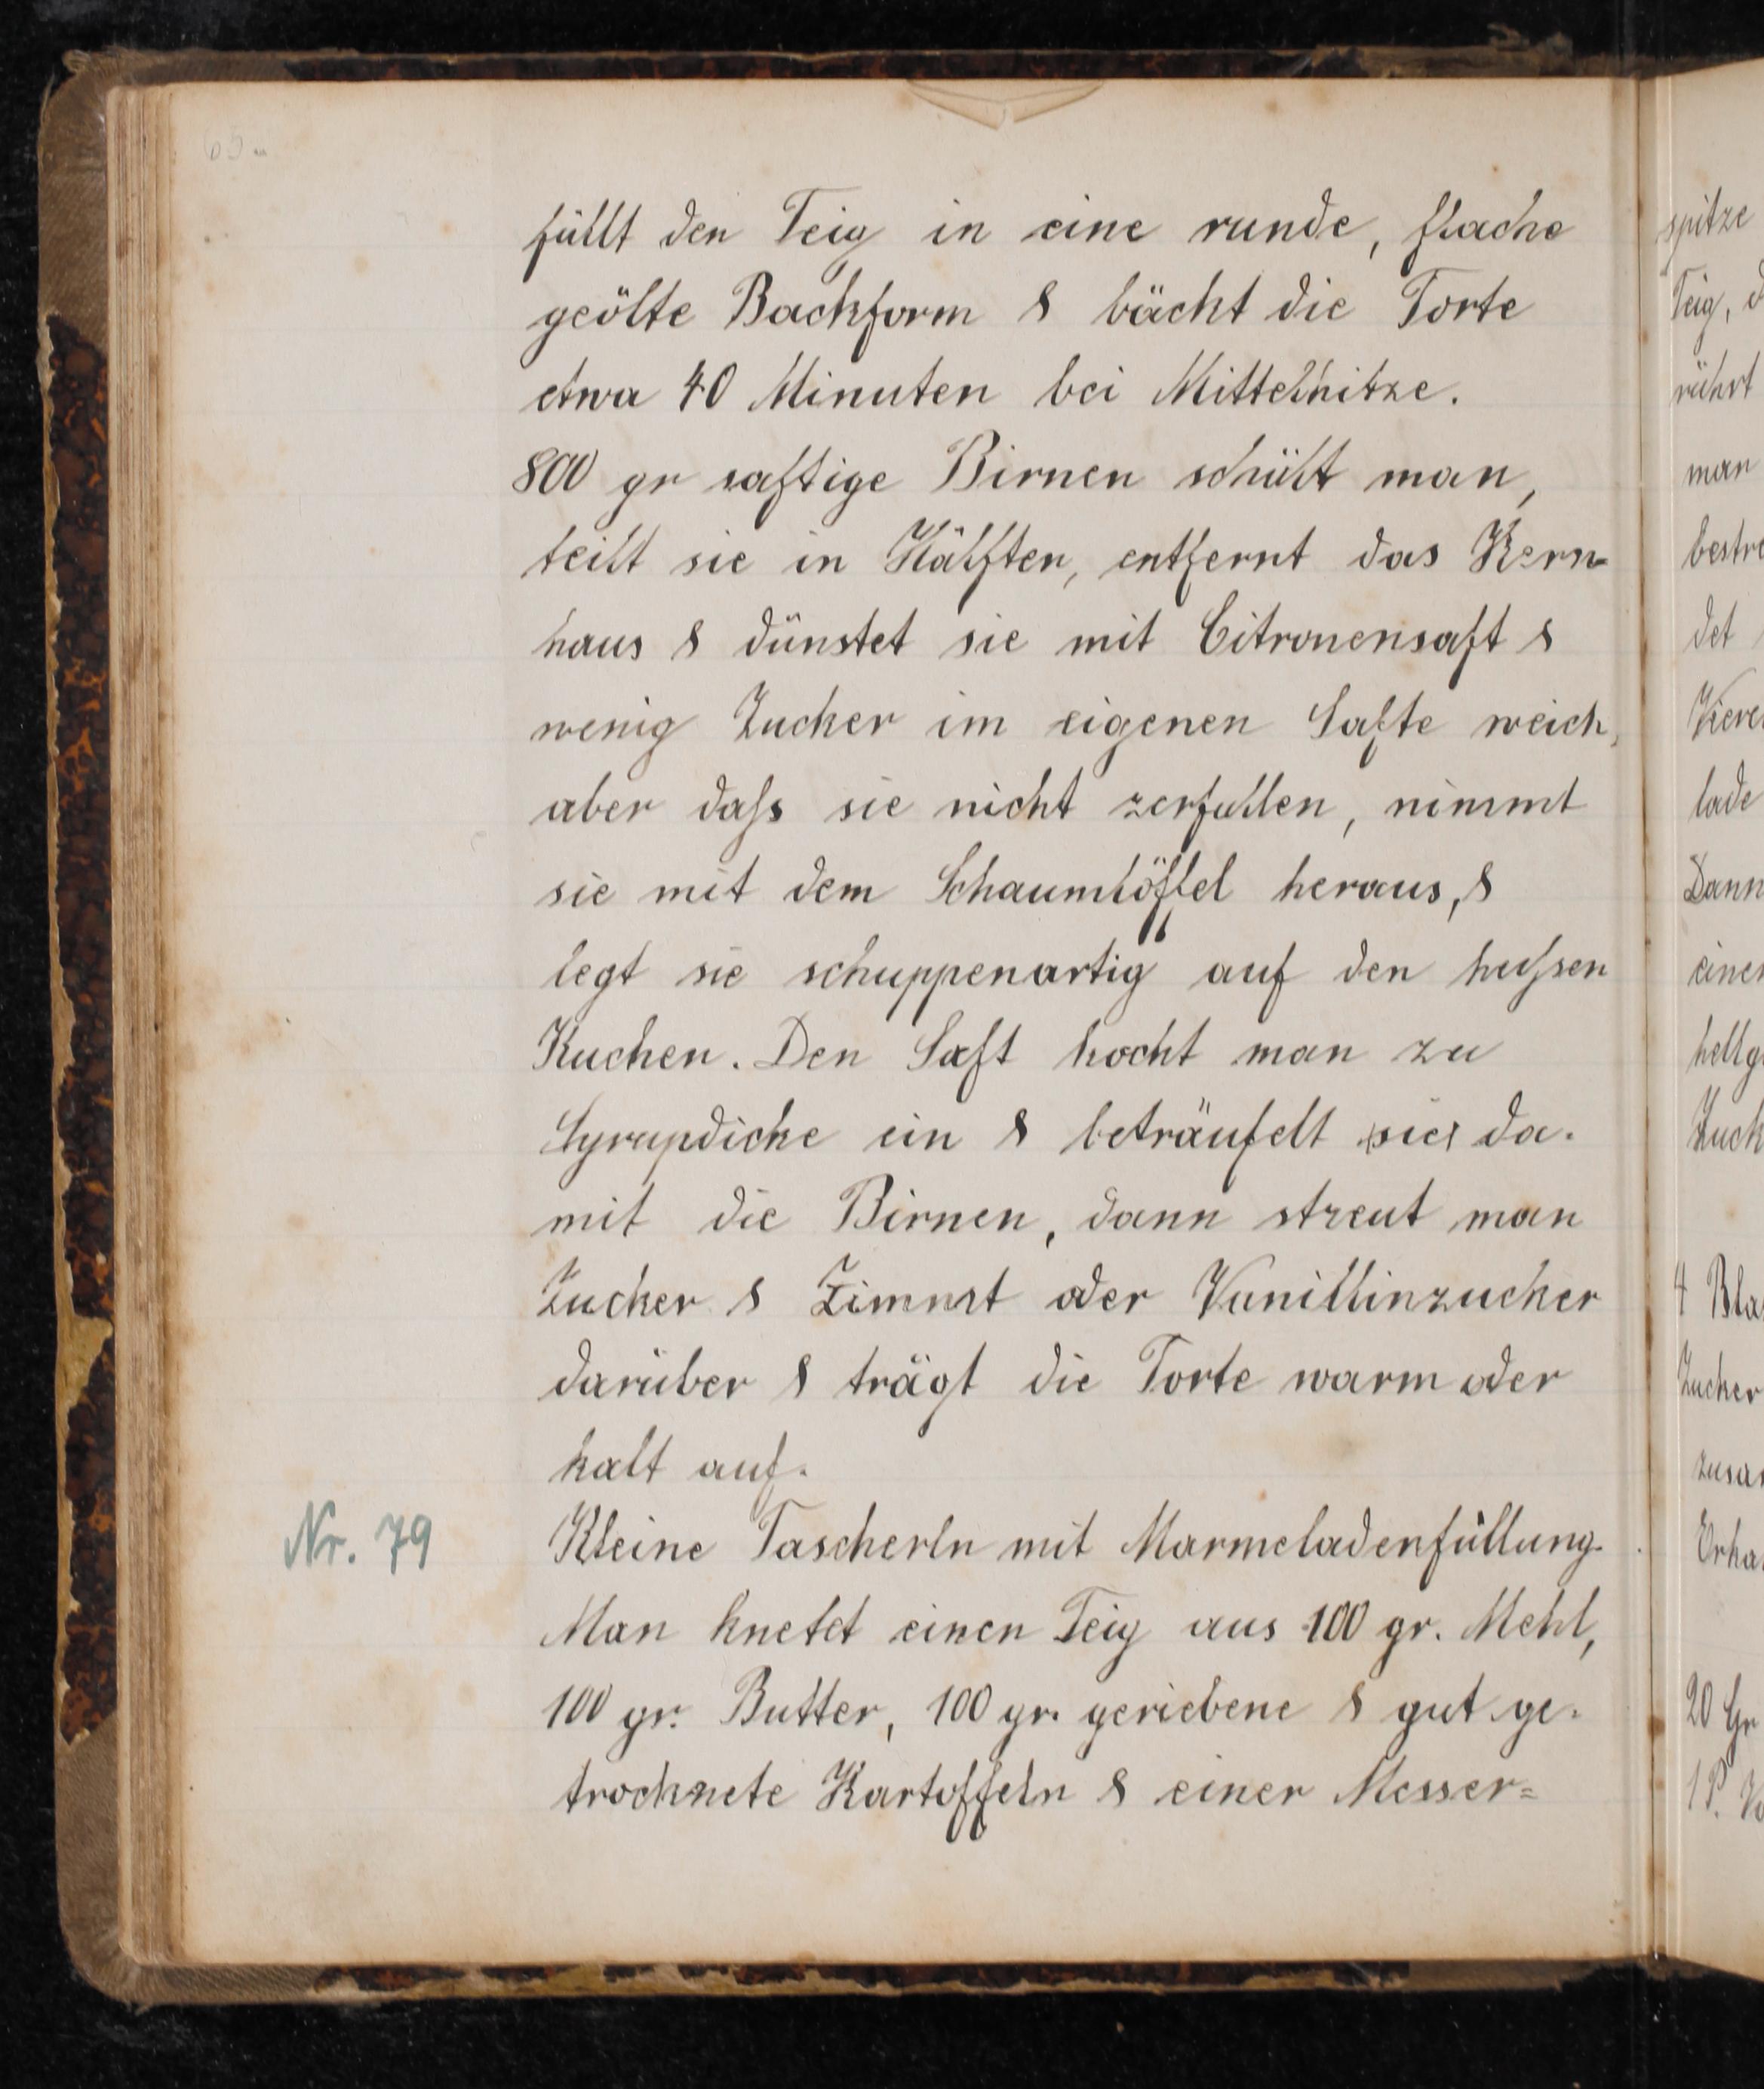 füllt den Teig in eine runde, flache
geölte Backform & bäckt die Torte
etwa 40 Minuten bei Mittelhitze.
800 gr saftige Birnen schält man,
teilt sie in Hälften, entfernt das Kern-
haus & dünstet sie mit Citronensaft &
wenig Zucker im eigenen Safte weich,
aber daß sie nicht zerfallen, nimmt
sie mit dem Schaumlöffel heraus, &
legt sie schuppenartig auf den heißen
Kuchen. Den Saft kocht man zu
Syrupdicke ein & beträufelt sie da-
mit die Birnen, dann streut man
Zucker & Zimmt oder Vanillinzucker
darüber & trägt die Torte warm oder
kalt auf.
Nr. 79 Kleine Tascherln mit Marmeladenfüllung.
Man knetet einen Teig aus 100 gr. Mehl,
100 gr. Butter, 100 gr. geriebene & gut ge-
trocknete Kartoffeln & einer Messer=
spitze
Teig, d
rührt
man
bestre
det
Viere
lade
Dann
einen
hellg
Zuck
4 Bla
Zucker
zusa
Erka
20 Gr
1 P. V